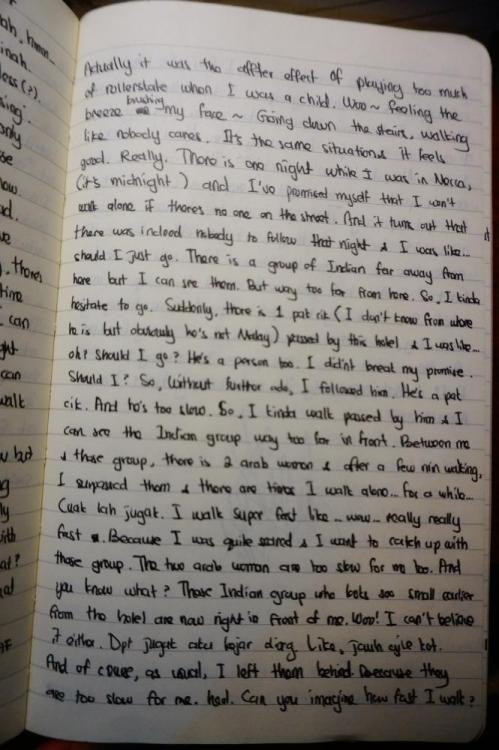 Actually it was the affter effect of playing too much
of rollerskate when I was a child. Woo~ feeling the
breeze brushing my face ~ Going down the stairs, walking
like nobody cares. It's the same situation & it feels
good. Really. There is one night while I was in Mecca,
(it's midnight) and I've promised myself that I won't
walk alone if theres no one on the street. And it turns out that
there was indeed nobody to follow that night & I was like...
should I just go. There is a group of Indian far away from
here but I can see them. But way too far from here. So, I kinda
hesitate to go. Suddenly, there is 1 pak cik (I don't know from where
he is but obviously he's not Malay) passed by this hotel & I was like...
oh? Should I go? He's a person too. I didn't break my promise.
Should I? So, without further ado, I followed him. He's a pak
cik. And he's too slow. So, I kinda walk passed by him & I
can see the Indian group way too far in front. Between me
& those group, there is 2 arab woman & after a few min walking,
I surpassed them & there are times I walk alone... for a while...
Cuak lah jugak. I walk super fast like... wew... really really
fast. Because I was quite scared & I want to catch up with
those group. The two arab woman are too slow for me too. And
you know what? Those Indian group who looks soo small earlier
from the hotel are now right in front of me. Woo! I can't believe
it either. Dpt jugak aku kejar diorg. Like, jauh gile kot.
And of course, as usual, I left them behind. Because they
are too slow for me. hed. Can you imagine how fast I walk?